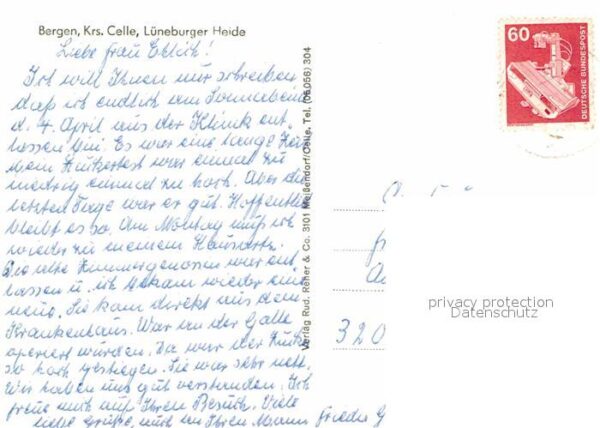 Bergen, Krs. Celle, Lüneburger Heide
Liebe Frau Ehlich!
Ich will Ihnen nur schreiben
daß ich endlich am Sonnabend
d. 4. April aus der Klinik ent
lassen bin. Es war eine lange Zeit
Mein Zuckertest war einmal zu
niedrig einmal zu hoch. Aber die
letzten Tage war er gut. Hoffentlich
bleibt es so. Am Montag muß ich
wieder zu meinem Hausarzt.
Die alte Zimmergenossin war ent
lassen u. ich bekam wieder eine
neue. Sie kam direkt aus dem
Krankenhaus. War an der Galle
operiert worden. Da war der Zucker
so hoch gestiegen. Sie war sehr nett.
Wir haben uns gut verstanden. Ich
freue mich auf Ihren Besuch. Viele
liebe Grüße, auch an Ihren Mann Frieda G
Verlag Rud. Reher & Co. 3101 Meißendorf/Celle, Tel. (05056) 304
60
DEUTSCHE BUNDESPOST
320
privacy protection
Datenschutz